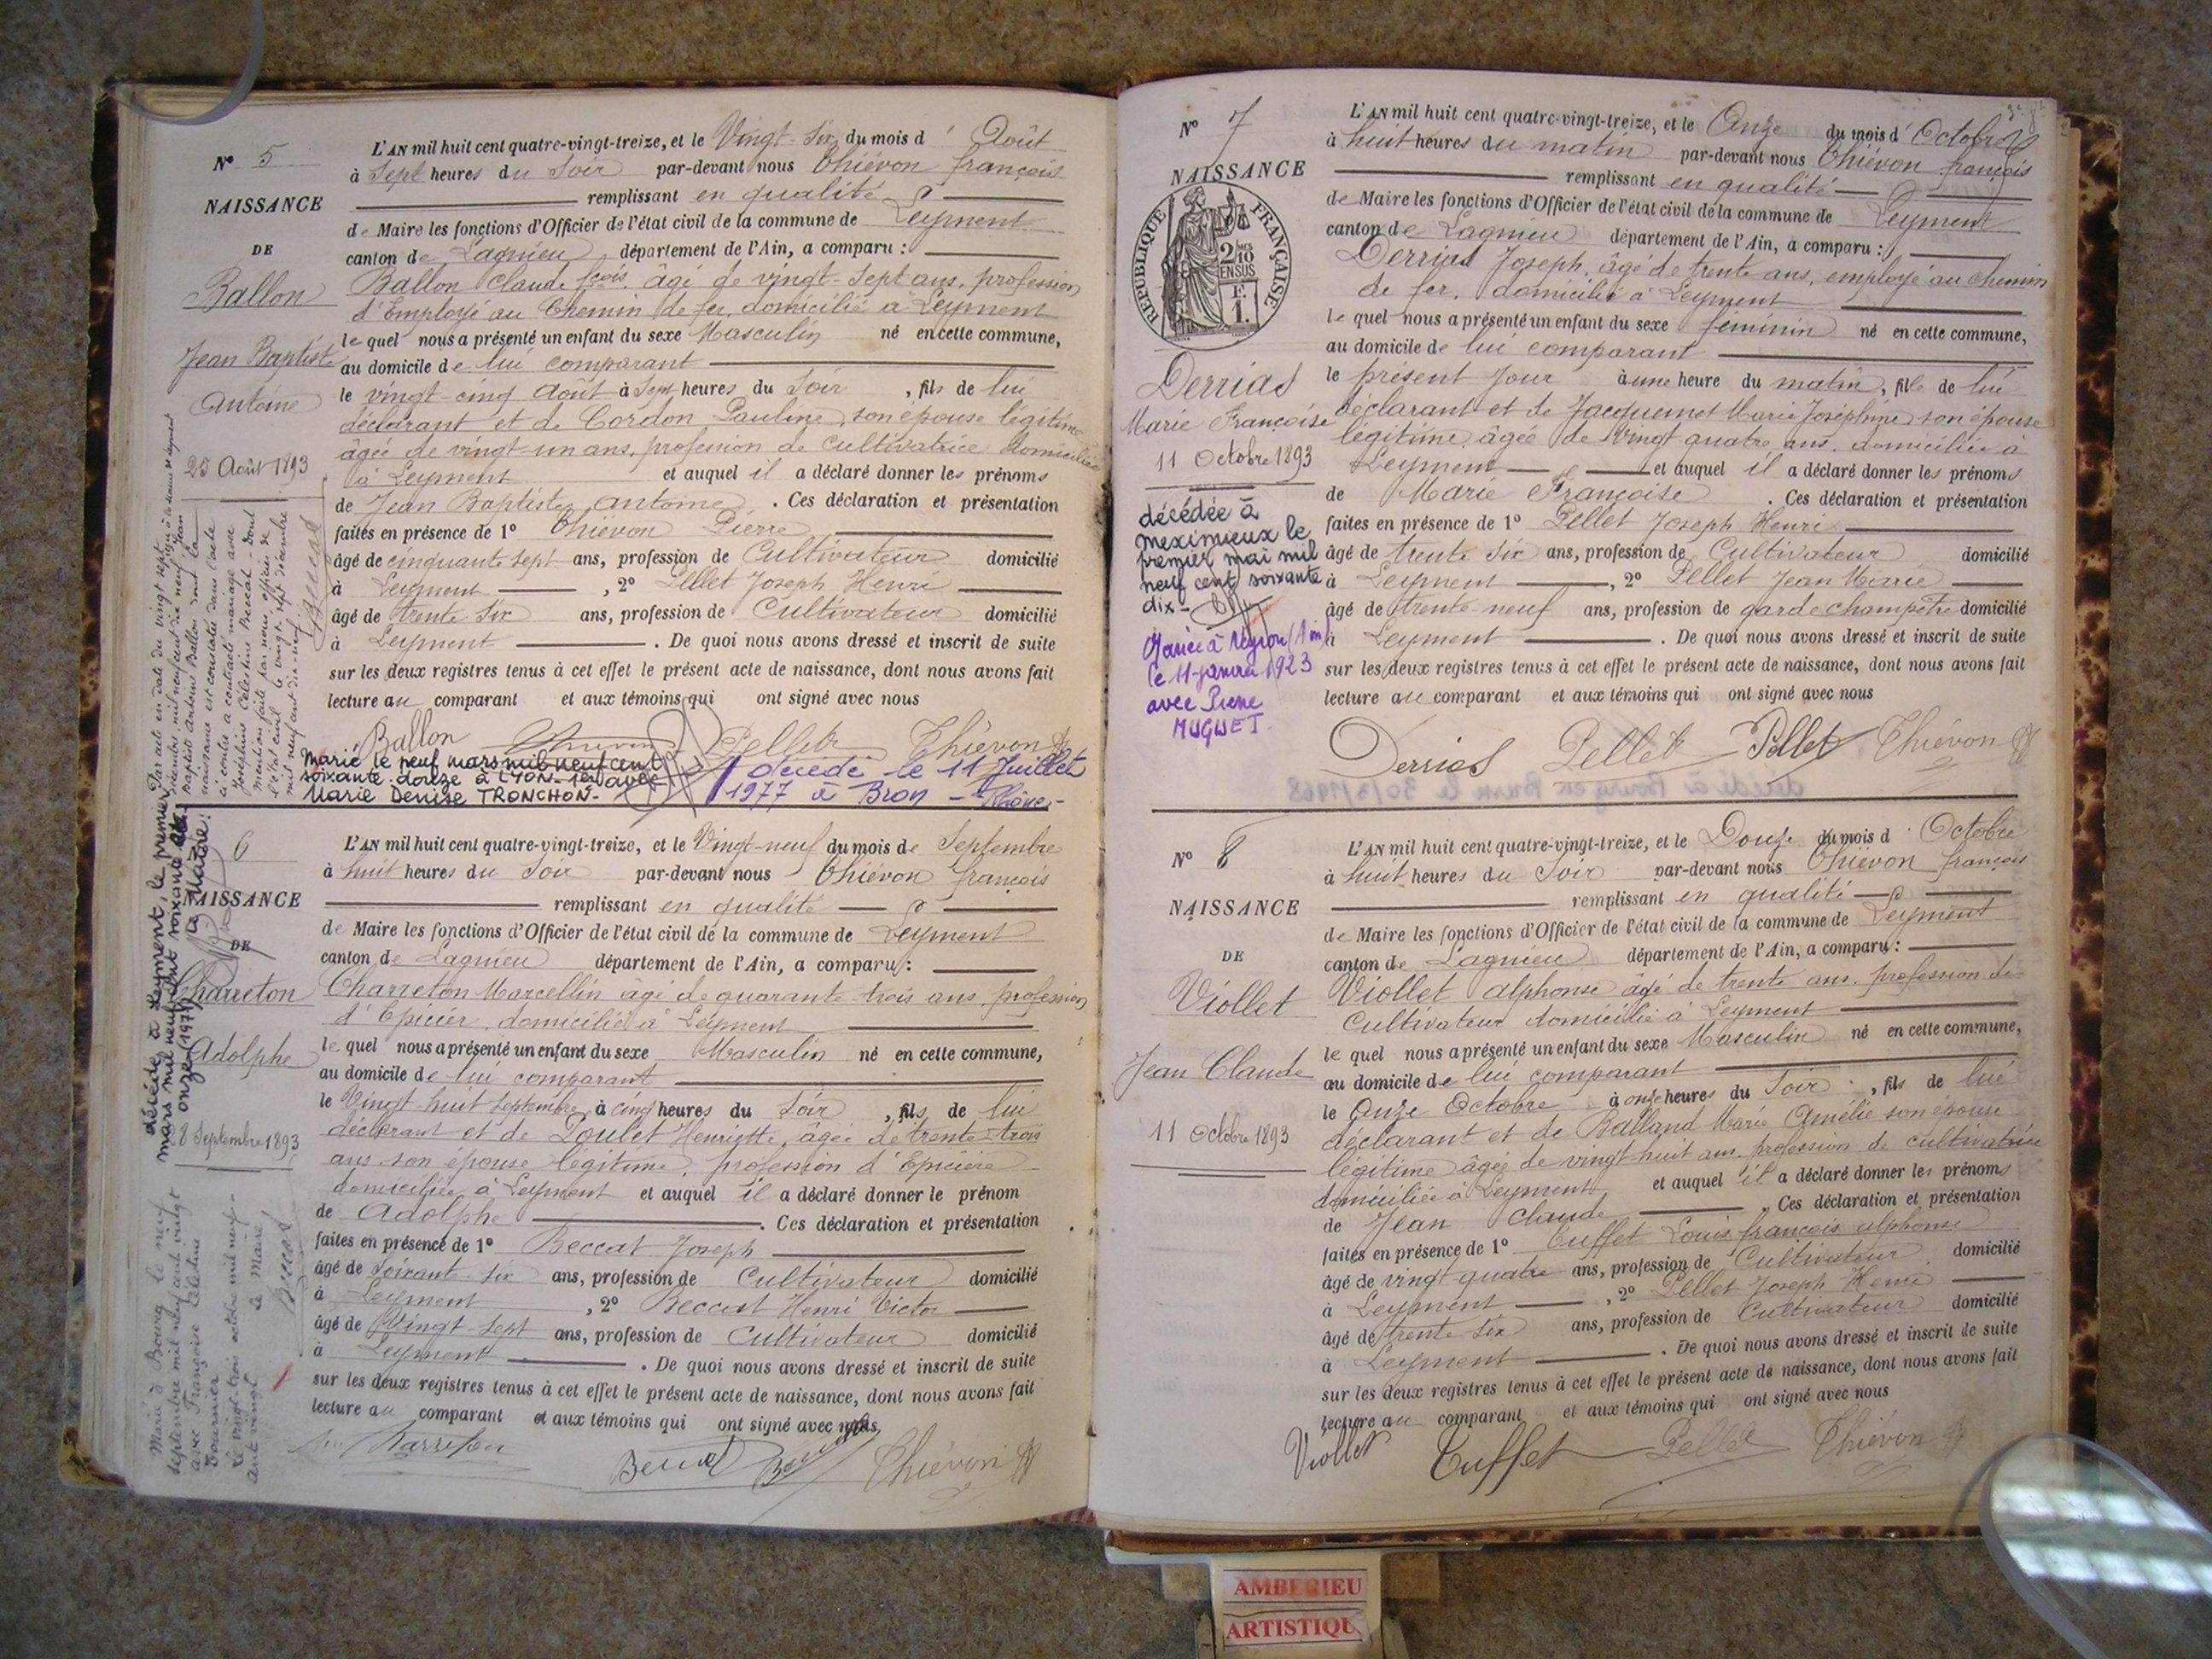 N° 5
NAISSANCE
DE
Ballon
Jean Baptiste
Antoine
25 Août 1893
L'AN mil huit cent quatre-vingt-treize, et le Vingt-Six du mois d' Août
à Sept heures du Soir par-devant nous Thiévon françois
remplissant en qualité
de Maire les fonctions d'Officier de l'état civil de la commune de Leyment
canton de Lagnieu département de l'Ain, a comparu :
Ballon Claude fçois, âgé de vingt-sept ans, profession
d'Employé au Chemin de fer, domicilié à Leyment
lequel nous a présenté un enfant du sexe Masculin né en cette commune,
au domicile de lui comparant
le vingt-cinq Août à Sept heures du Soir, fils de lui
déclarant et de Cordon Pauline, son épouse légitime
âgée de vingt-un ans, profession de cultivatrice domiciliée
à Leyment et auquel il a déclaré donner les prénoms
de Jean Baptiste Antoine. Ces déclaration et présentation
faites en présence de 1° Thiévon Pierre
âgé de cinquante sept ans, profession de Cultivateur domicilié
à Leyment, 2° Pellet Joseph Henri
âgé de trente six ans, profession de Cultivateur domicilié
à Leyment. De quoi nous avons dressé et inscrit de suite
sur les deux registres tenus à cet effet le présent acte de naissance, dont nous avons fait
lecture au comparant et aux témoins qui ont signé avec nous
Ballon Pellet Thiévon
Marié le neuf mars mil neuf cent
soixante douze à LYON-1er avec
Marie Denise TRONCHON-
décédé le 11 Juillet
1977 à Bron -Rhône-
6
NAISSANCE
DE
Charreton
Adolphe
8 Septembre 1893
décédé à Leyment, le premier
mars mil neuf cent soixante
onze (1971)
Le Maire:
Marié à Bourg le neuf
septembre mil neuf cent vingt
avec Françoise Célestine
Tournier
Le vingt trois octobre mil neuf
cent vingt
Le Maire
Beccat
L'AN mil huit cent quatre-vingt-treize, et le Vingt-neuf du mois de Septembre
à huit heures du Soir par-devant nous Thiévon françois
remplissant en qualité
de Maire les fonctions d'Officier de l'état civil de la commune de Leyment
canton de Lagnieu département de l'Ain, a comparu :
Charreton Marcellin âgé de quarante-trois ans, profession
d'Epicier, domicilié à Leyment
lequel nous a présenté un enfant du sexe Masculin né en cette commune,
au domicile de lui comparant
le Vingt-huit Septembre à cinq heures du Soir, fils de lui
déclarant et de Poulet Henriette, âgée de trente-trois
ans son épouse légitime, profession d'Epicière
domiciliée à Leyment et auquel il a déclaré donner le prénom
de Adolphe. Ces déclaration et présentation
faites en présence de 1° Beccat Joseph
âgé de Soixante-six ans, profession de Cultivateur domicilié
à Leyment, 2° Beccat Henri Victor
âgé de Vingt-sept ans, profession de Cultivateur domicilié
à Leyment. De quoi nous avons dressé et inscrit de suite
sur les deux registres tenus à cet effet le présent acte de naissance, dont nous avons fait
lecture au comparant et aux témoins qui ont signé avec nous
Thiévon
N° 7
NAISSANCE
REPUBLIQUE FRANÇAISE
2/10 EN SUS
F. 1.
Derrias
Marie Françoise
11 Octobre 1893
décédée à
Meximieux le
premier mai mil
neuf cent soixante
dix-
Mariée à Leyment (Ain)
le 11 janvier 1923
avec Pierre
MUGUET.
L'AN mil huit cent quatre-vingt-treize, et le Onze du mois d' Octobre
à huit heures du matin par-devant nous Thiévon françois
remplissant en qualité
de Maire les fonctions d'Officier de l'état civil de la commune de Leyment
canton de Lagnieu département de l'Ain, a comparu :
Derrias Joseph, âgé de trente ans, employé au chemin
de fer, domicilié à Leyment
lequel nous a présenté un enfant du sexe féminin né en cette commune,
au domicile de lui comparant
le présent Jour à une heure du matin, fille de lui
déclarant et de Jacquemet Marie Joséphine son épouse
légitime, âgée de vingt quatre ans, domiciliée à
Leyment et auquel il a déclaré donner les prénoms
de Marie Françoise. Ces déclaration et présentation
faites en présence de 1° Pellet Joseph Henri
âgé de trente six ans, profession de Cultivateur domicilié
à Leyment, 2° Pellet Jean Marie
âgé de trente-neuf ans, profession de garde champêtre domicilié
à Leyment. De quoi nous avons dressé et inscrit de suite
sur les deux registres tenus à cet effet le présent acte de naissance, dont nous avons fait
lecture au comparant et aux témoins qui ont signé avec nous
Derrias Pellet Pellet Thiévon
N° 8
NAISSANCE
DE
Viollet
Jean Claude
11 Octobre 1893
L'AN mil huit cent quatre-vingt-treize, et le Douze du mois d' Octobre
à huit heures du Soir par-devant nous Thiévon françois
remplissant en qualité
de Maire les fonctions d'Officier de l'état civil de la commune de Leyment
canton de Lagnieu département de l'Ain, a comparu :
Viollet Alphonse âgé de trente ans, profession de
Cultivateur domicilié à Leyment
lequel nous a présenté un enfant du sexe Masculin né en cette commune,
au domicile de lui comparant
le Onze Octobre à onze heures du Soir, fils de lui
déclarant et de Balland Marie Amélie son épouse
légitime âgée de vingt-huit ans, profession de cultivatrice
domiciliée à Leyment et auquel il a déclaré donner les prénoms
de Jean Claude. Ces déclaration et présentation
faites en présence de 1° Tuffet Louis françois alphonse
âgé de vingt quatre ans, profession de Cultivateur domicilié
à Leyment, 2° Pellet Joseph Henri
âgé de trente six ans, profession de Cultivateur domicilié
à Leyment. De quoi nous avons dressé et inscrit de suite
sur les deux registres tenus à cet effet le présent acte de naissance, dont nous avons fait
lecture au comparant et aux témoins qui ont signé avec nous
Viollet Tuffet Pellet Thiévon
AMBERIEU
ARTISTIQU